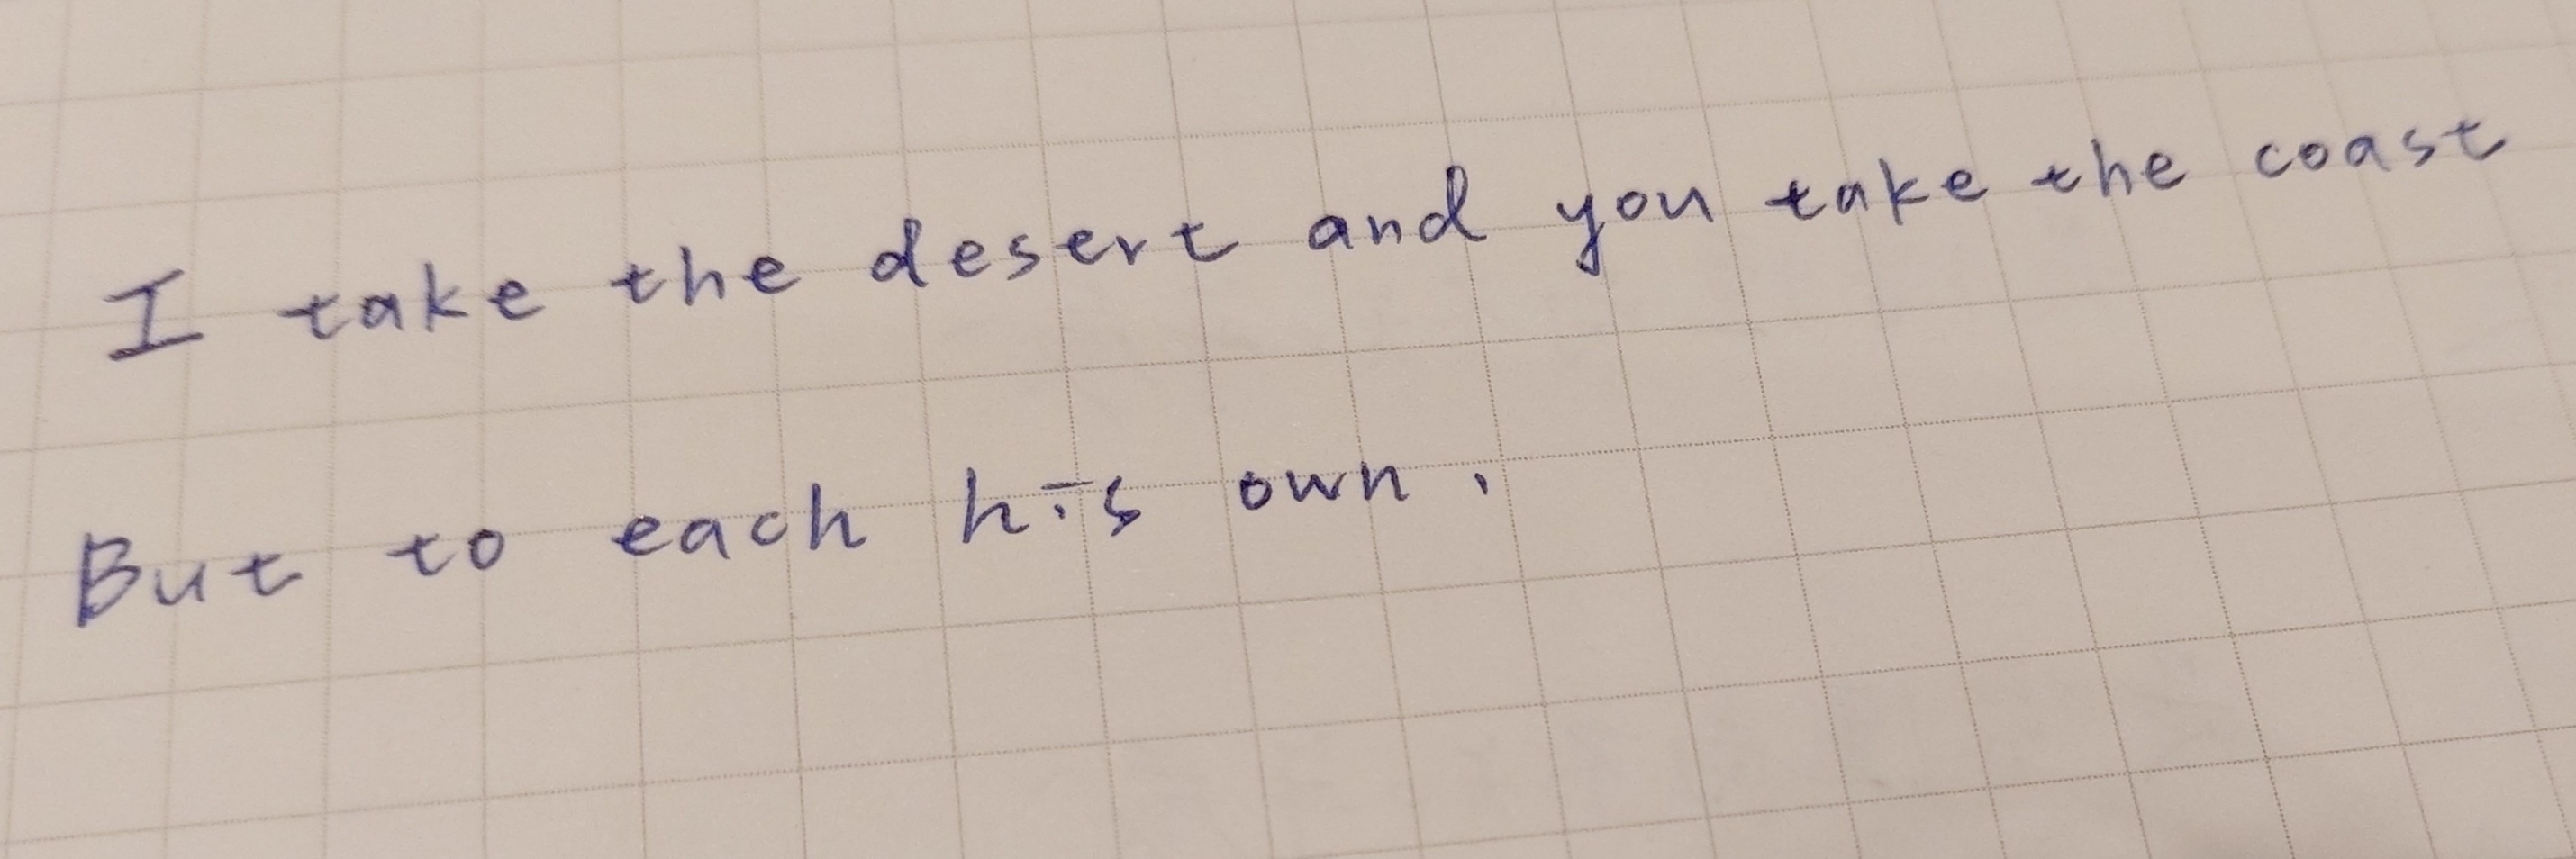 I take the desert and you take the coast
But to each his own.